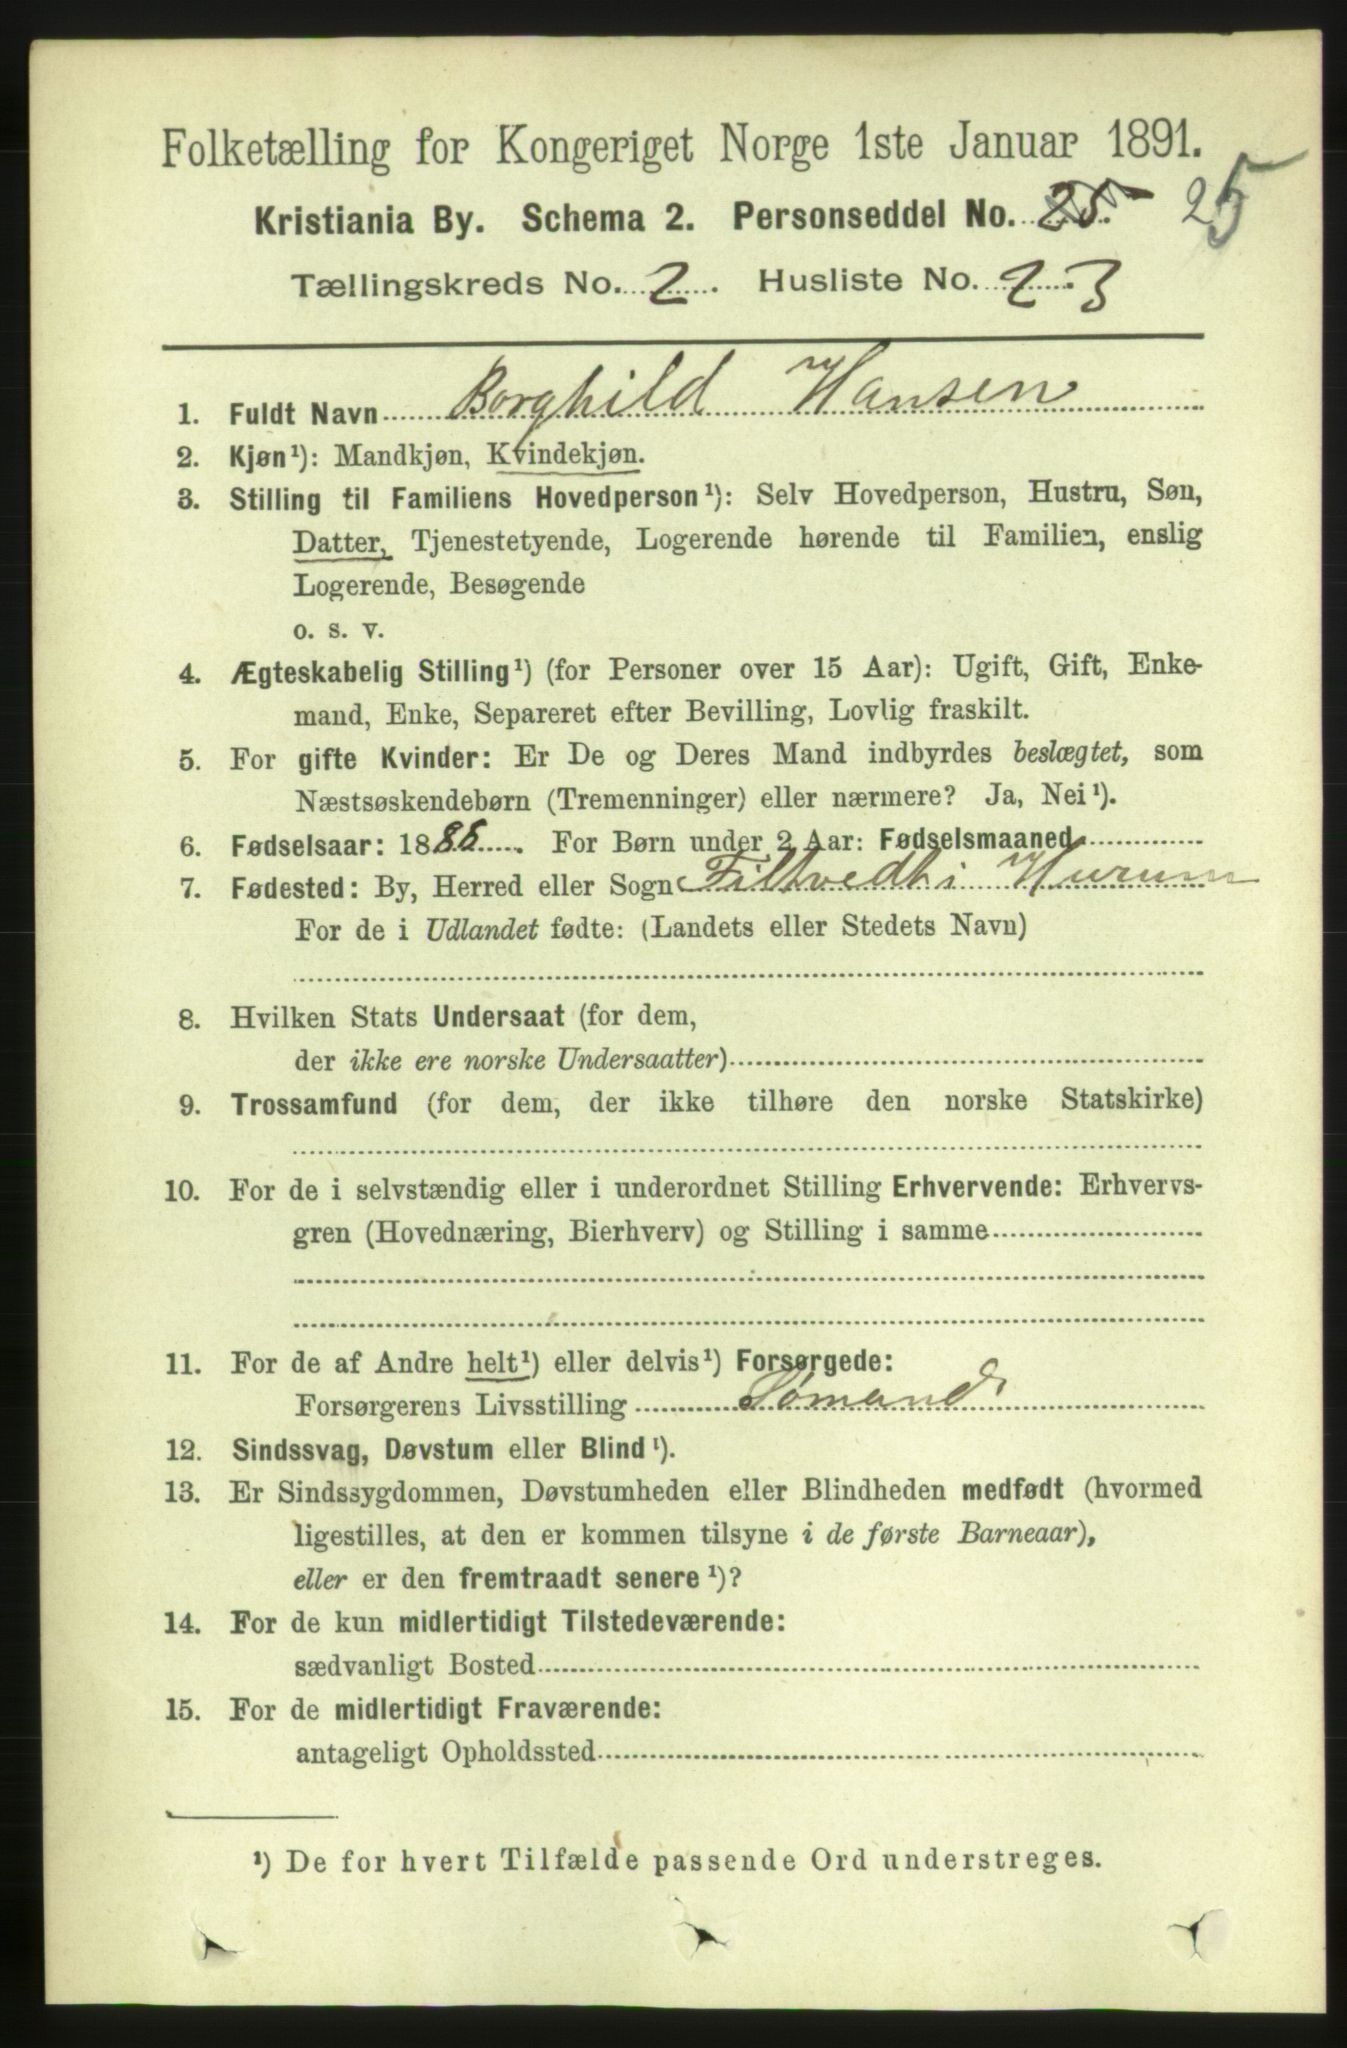 Folketælling for Kongeriget Norge 1ste Januar 1891.
Kristiania By. Schema 2. Personseddel No. 25. 25
Tællingskreds No. 2. Husliste No. 23
1. Fuldt Navn Borghild Hansen
2. Kjøn¹): Mandkjøn, Kvindekjøn.
3. Stilling til Familiens Hovedperson¹): Selv Hovedperson, Hustru, Søn,
Datter, Tjenestetyende, Logerende hørende til Familien, enslig
Logerende, Besøgende
o. s. v.
4. Ægteskabelig Stilling¹) (for Personer over 15 Aar): Ugift, Gift, Enke-
mand, Enke, Separeret efter Bevilling, Lovlig fraskilt.
5. For gifte Kvinder: Er De og Deres Mand indbyrdes beslægtet, som
Næstsøskendebørn (Tremenninger) eller nærmere? Ja, Nei¹).
6. Fødselsaar: 1886. For Børn under 2 Aar: Fødselsmaaned
7. Fødested: By, Herred eller Sogn Filtvedt i Hurum
For de i Udlandet fødte: (Landets eller Stedets Navn)
8. Hvilken Stats Undersaat (for dem,
der ikke ere norske Undersaatter)
9. Trossamfund (for dem, der ikke tilhøre den norske Statskirke)
10. For de i selvstændig eller i underordnet Stilling Erhvervende: Erhvervs-
gren (Hovednæring, Bierhverv) og Stilling i samme
11. For de af Andre helt¹) eller delvis¹) Forsørgede:
Forsørgerens Livsstilling Sømand
12. Sindssvag, Døvstum eller Blind¹).
13. Er Sindssygdommen, Døvstumheden eller Blindheden medfødt (hvormed
ligestilles, at den er kommen tilsyne i de første Barneaar),
eller er den fremtraadt senere¹)?
14. For de kun midlertidigt Tilstedeværende:
sædvanligt Bosted
15. For de midlertidigt Fraværende:
antageligt Opholdssted
¹) De for hvert Tilfælde passende Ord understreges.